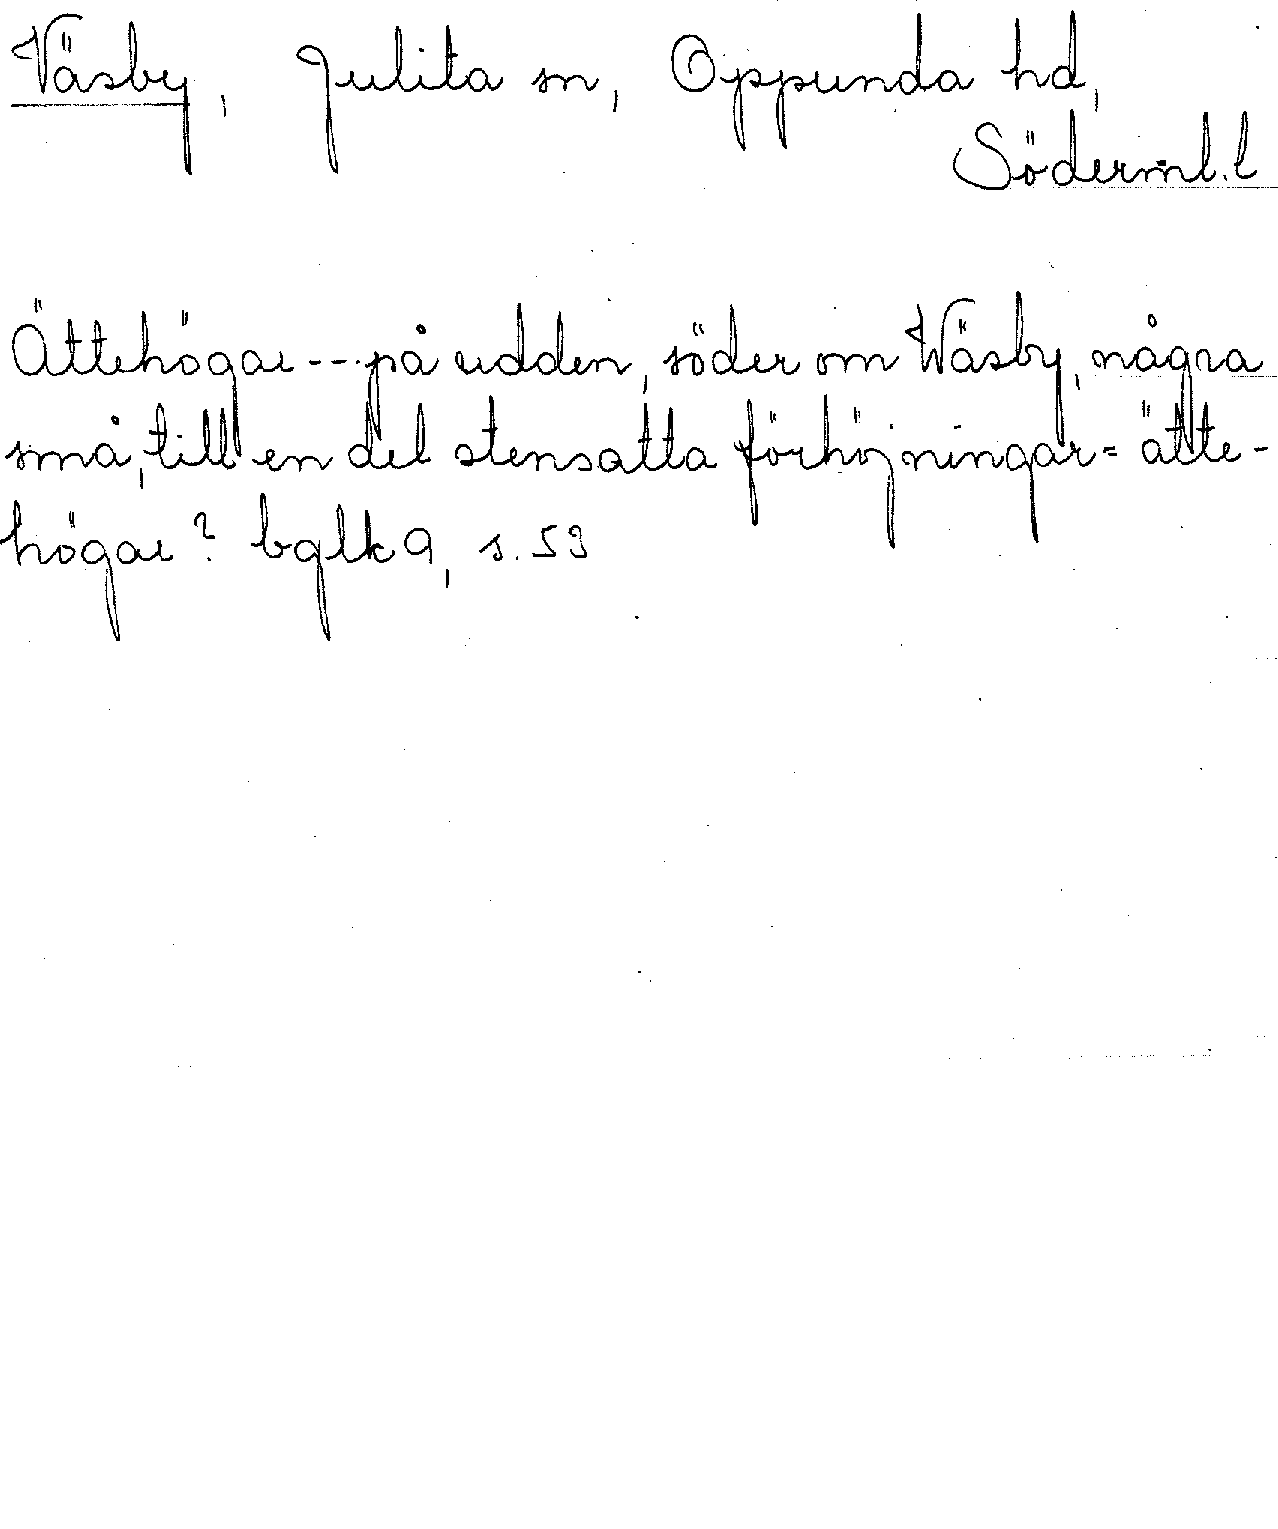 Väsby, Julita sn, Oppunda hd,
Söderml.l
Ättehögar --- på udden, söder om Wäsby, några
små, till en del stensatta förhöjningar = ätte-
högar? bglk 9, s. 53